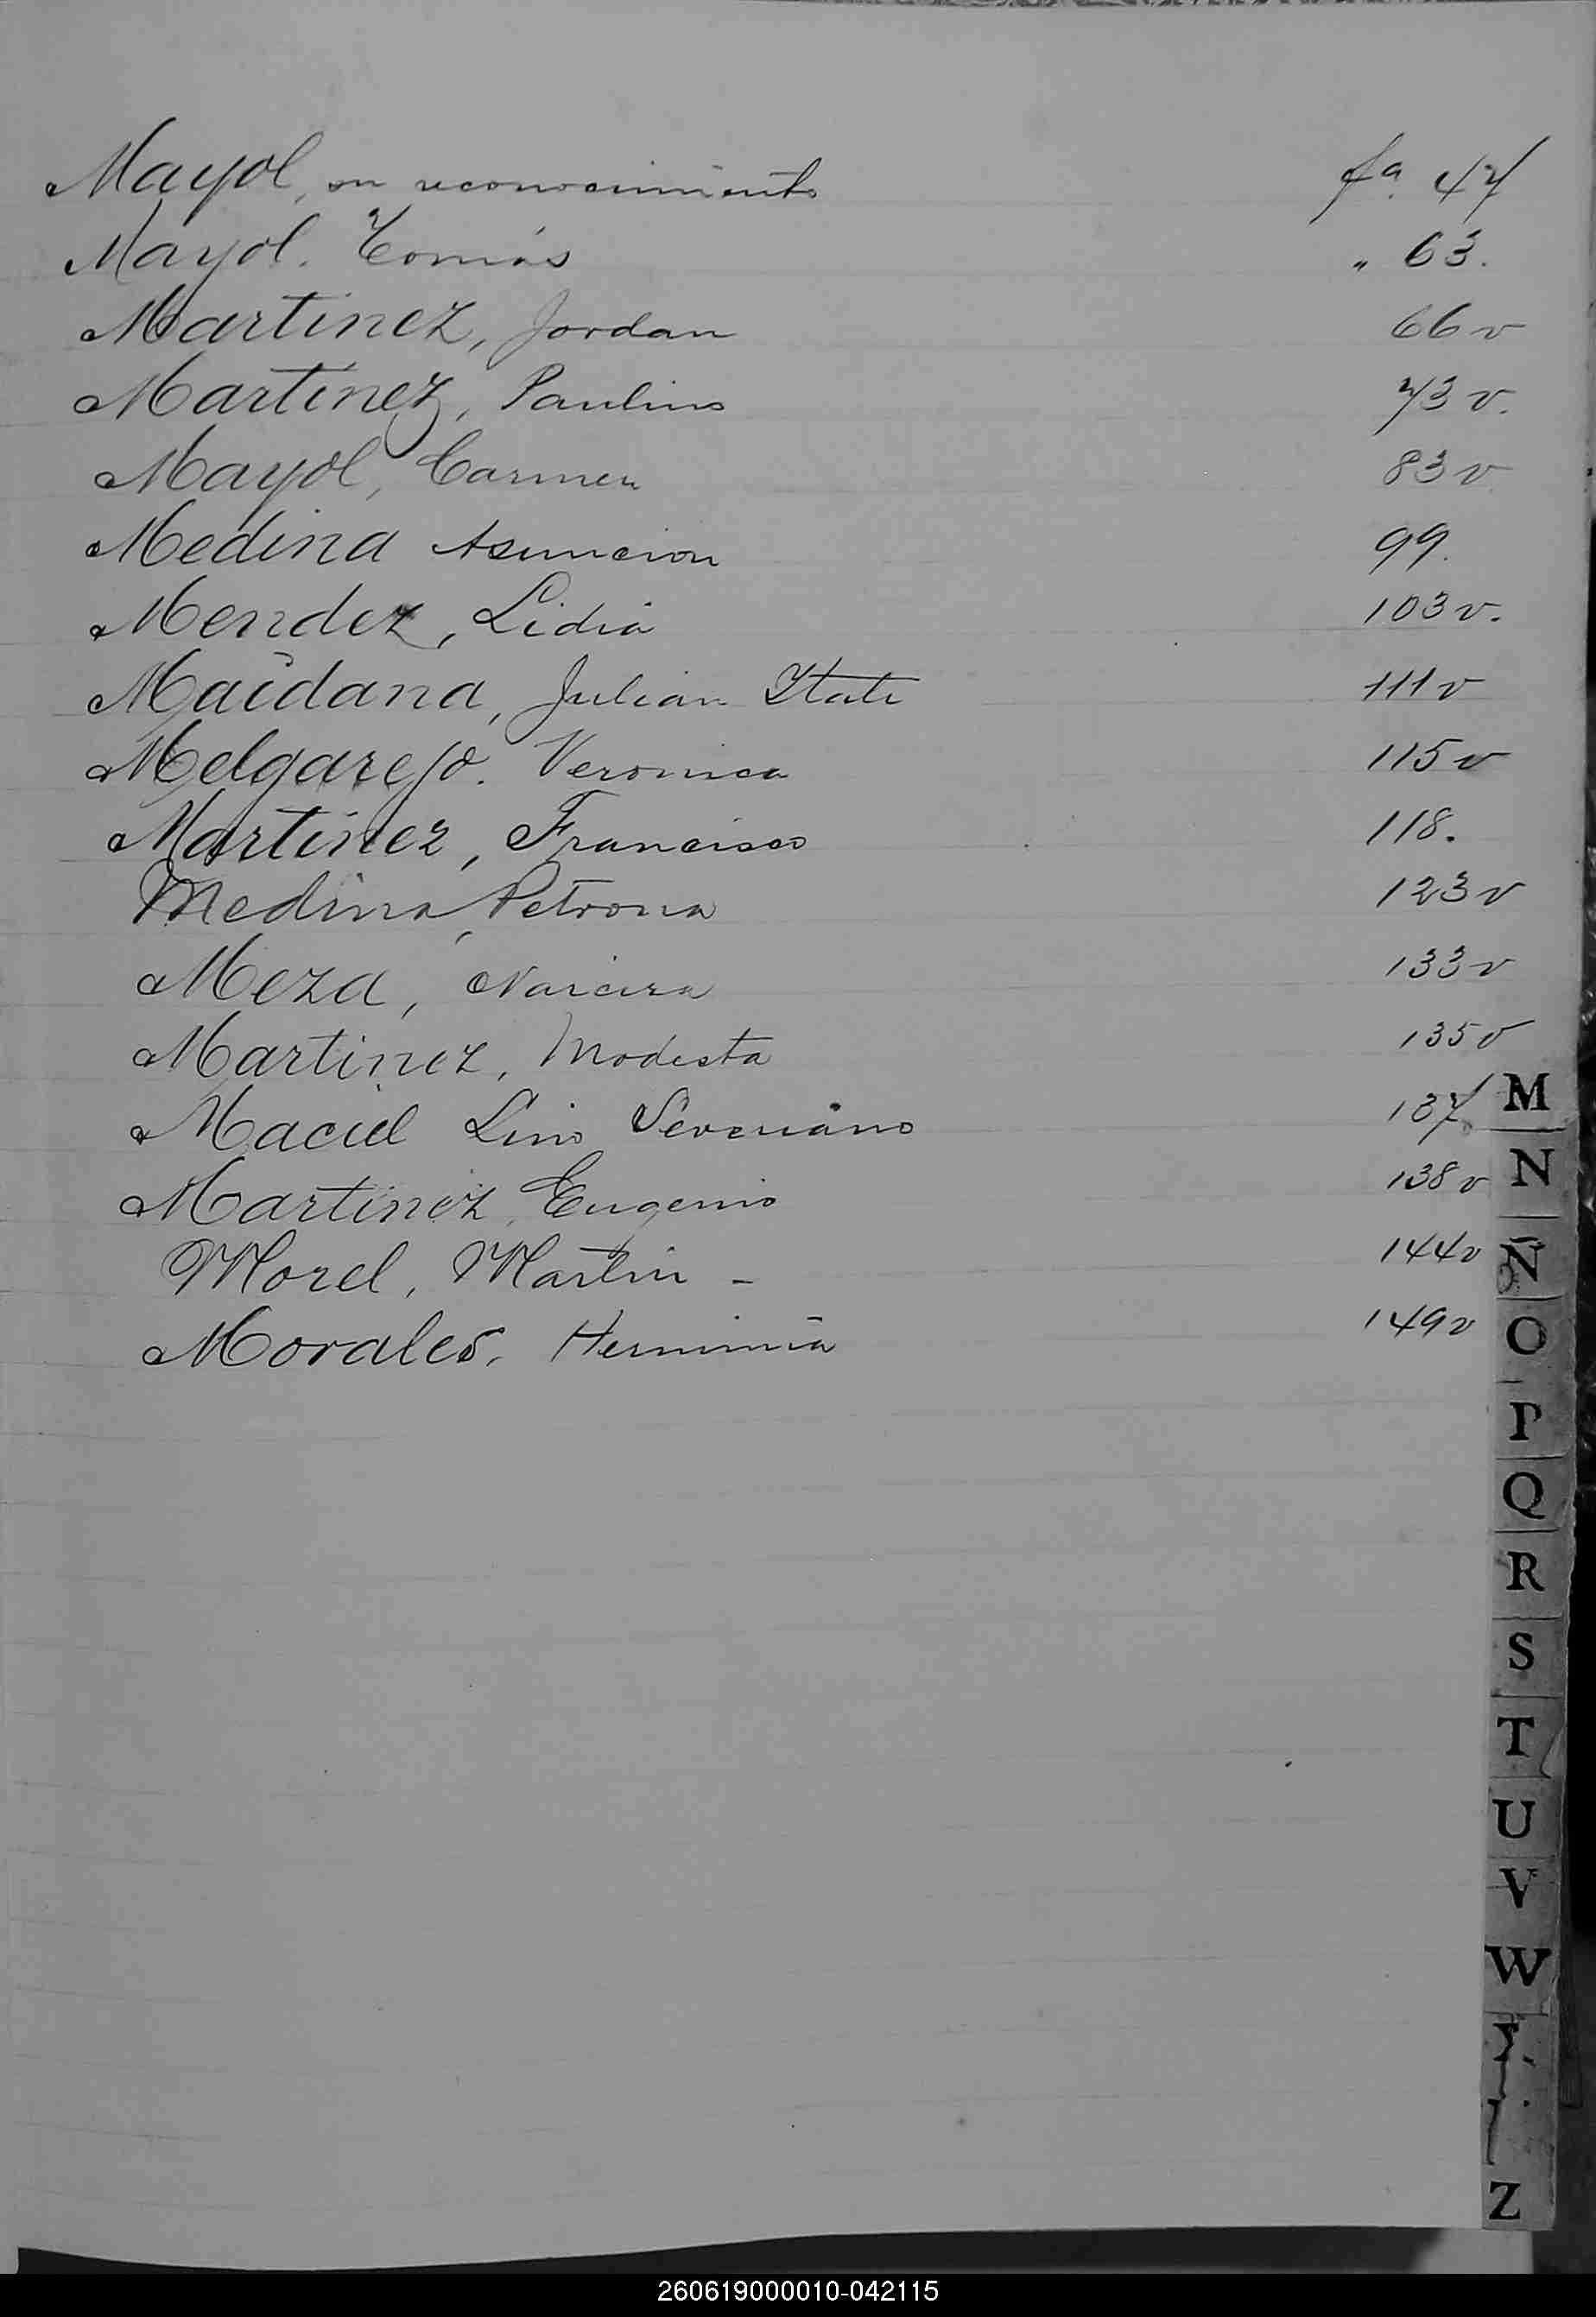 Mayol, su reconocimiento fa. 47
Mayol. Tomás „ 63.
Martinez, Jordan 66 v
Martinez, Paulino 73 v.
Mayol, Carmen 83 v
Medina Asuncion 99.
Mendez, Lidia 103 v.
Maidana, Julian Itati 111 v
Melgarejo. Veronica 115 v
Martinez, Francisco 118.
Medina, Petrona 123 v
Meza, Narcisa 133 v
Martinez, Modesta 135 v
Maciel Lino Severiano 137
Martinez, Eugenio 138 v
Morel, Martin - 144 v
Morales, Herminia 149 v
M
N
Ñ
O
P
Q
R
S
T
U
V
W
Z
260619000010-042115